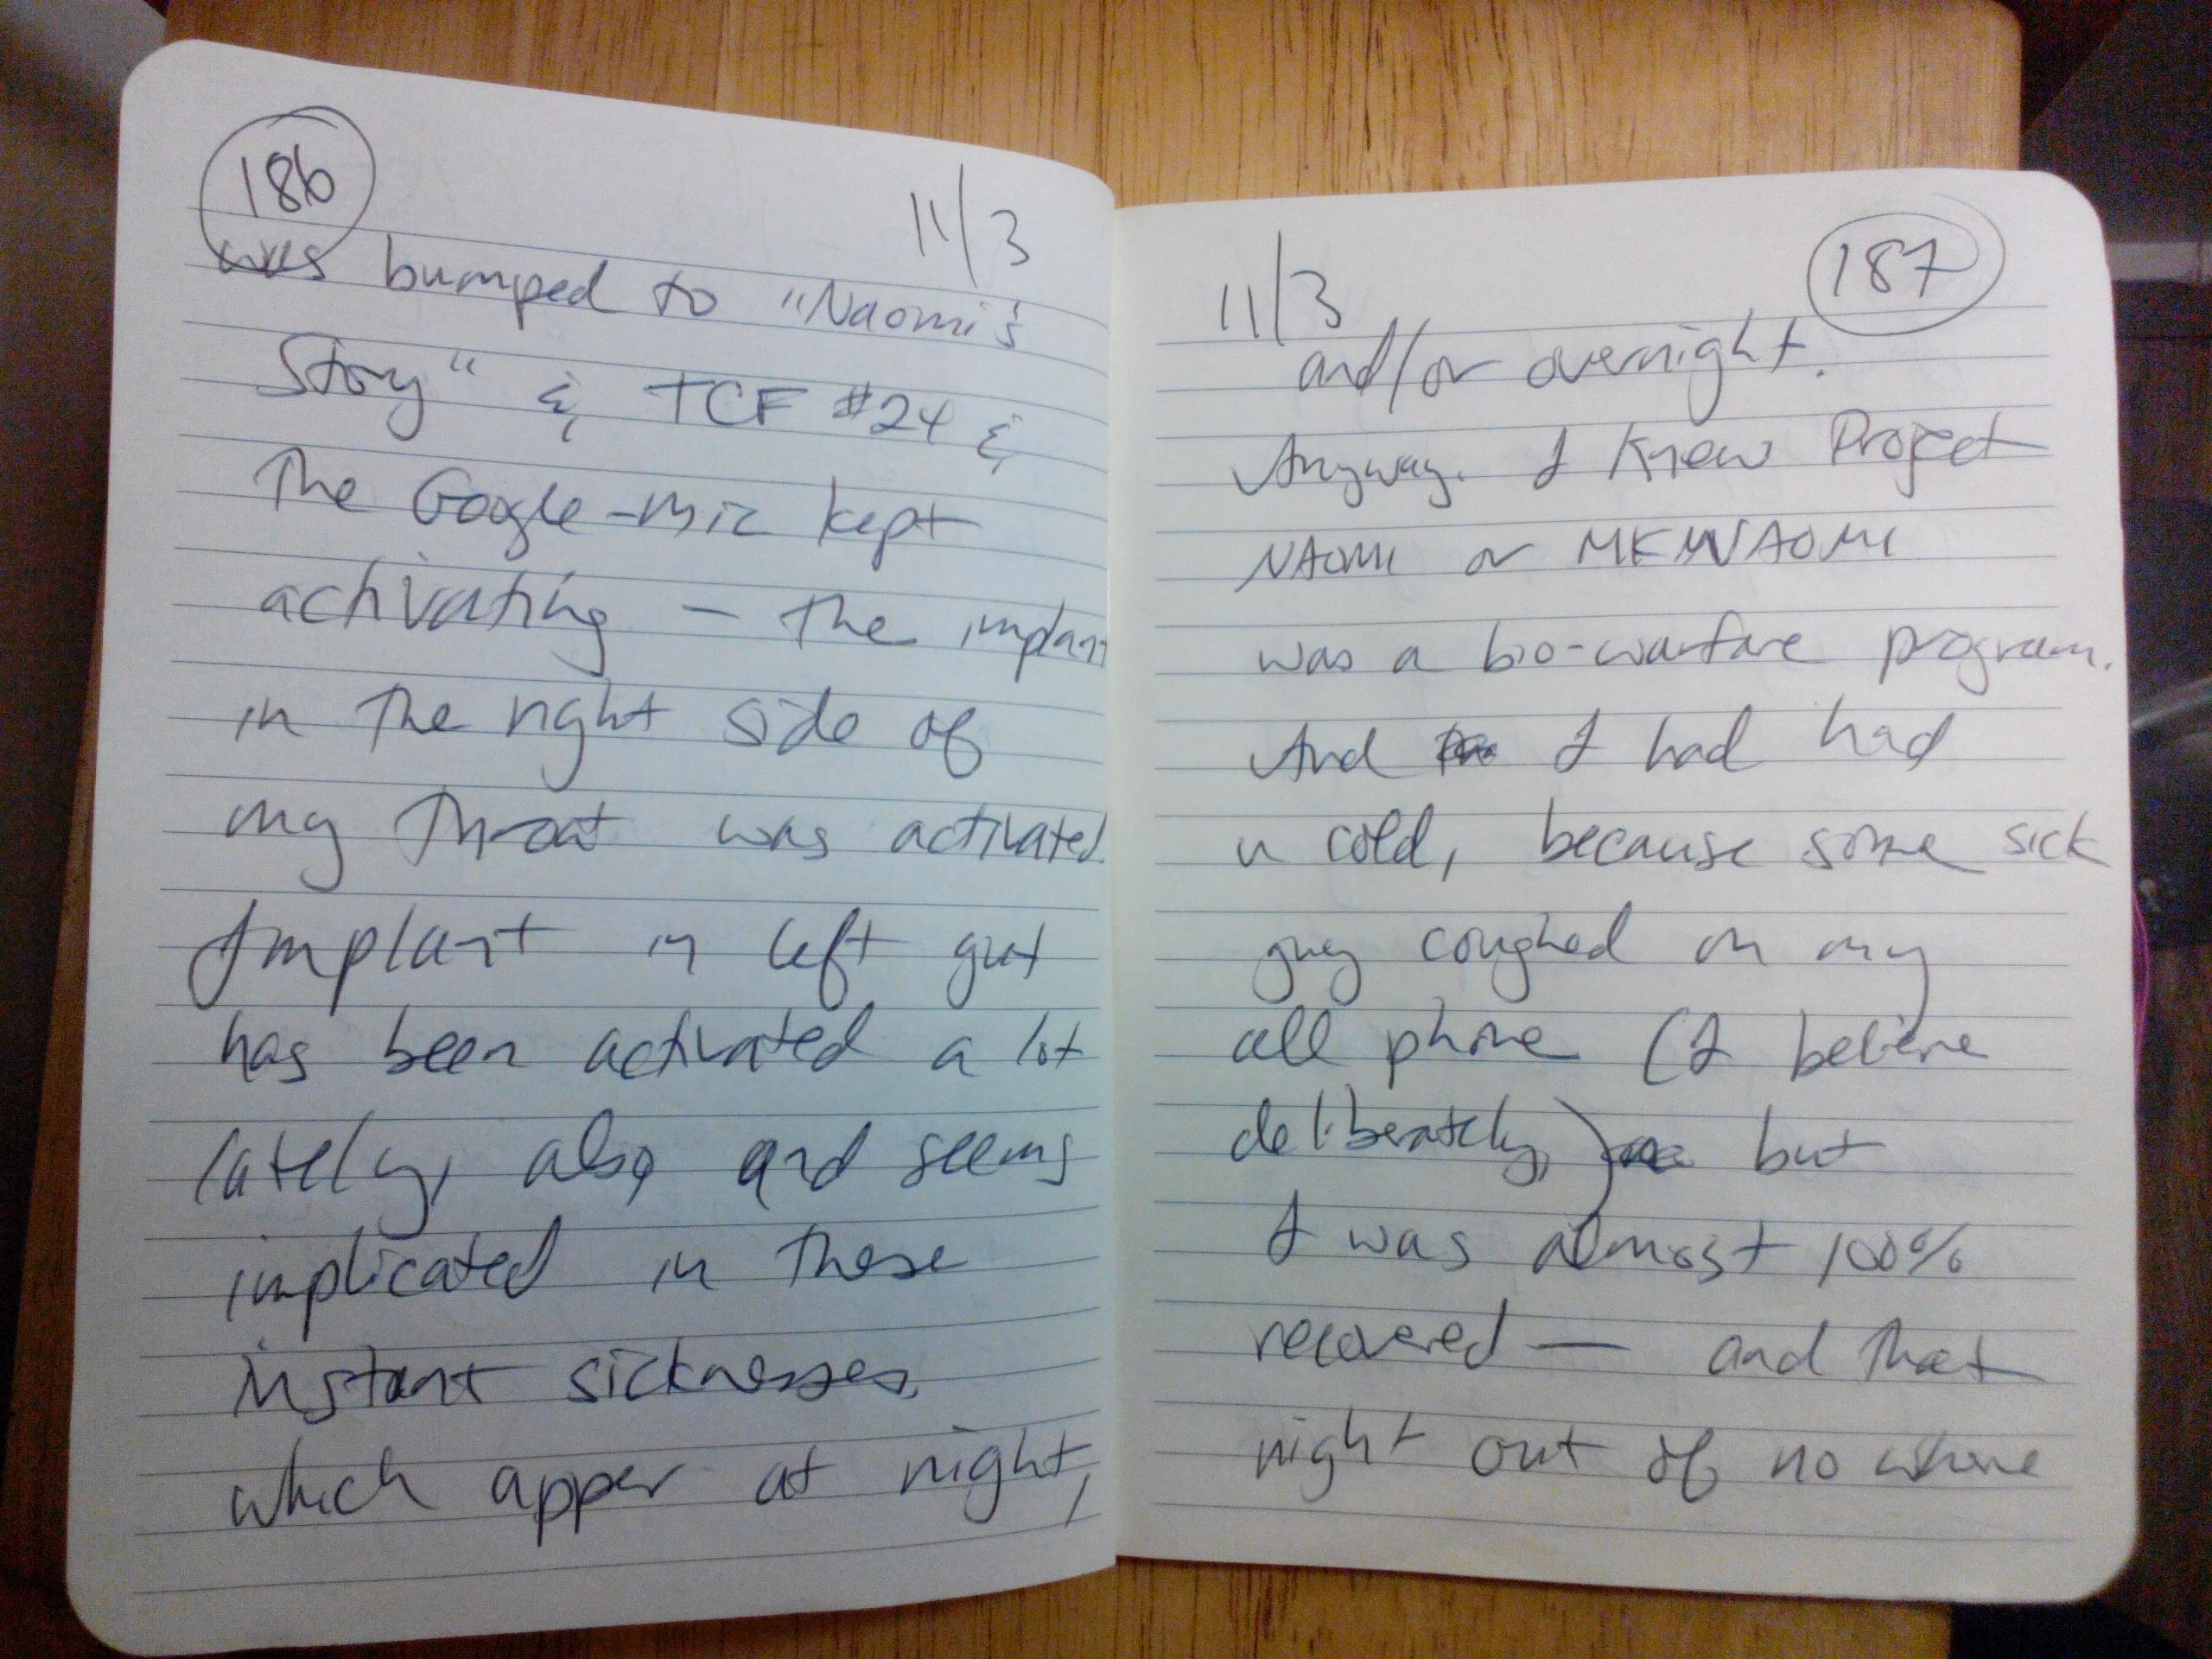 186
11/3
was bumped to "Naomi's
Story" & TCF #24 &
The Google-mic kept
activating – the implant
in the right side of
my throat was activated.
Implant in left gut
has been activated a lot
lately, also, and seems
implicated in these
instant sicknesses,
which apper at night,
187
11/3
and/or overnight.
Anyway. I knew Project
NAOMI or MKNAOMI
was a bio-warfare program.
And I had had
a cold, because some sick
guy coughed on my
cell phone (I believe
deliberately,) but
I was almost 100%
recovered — and that
night out of no where